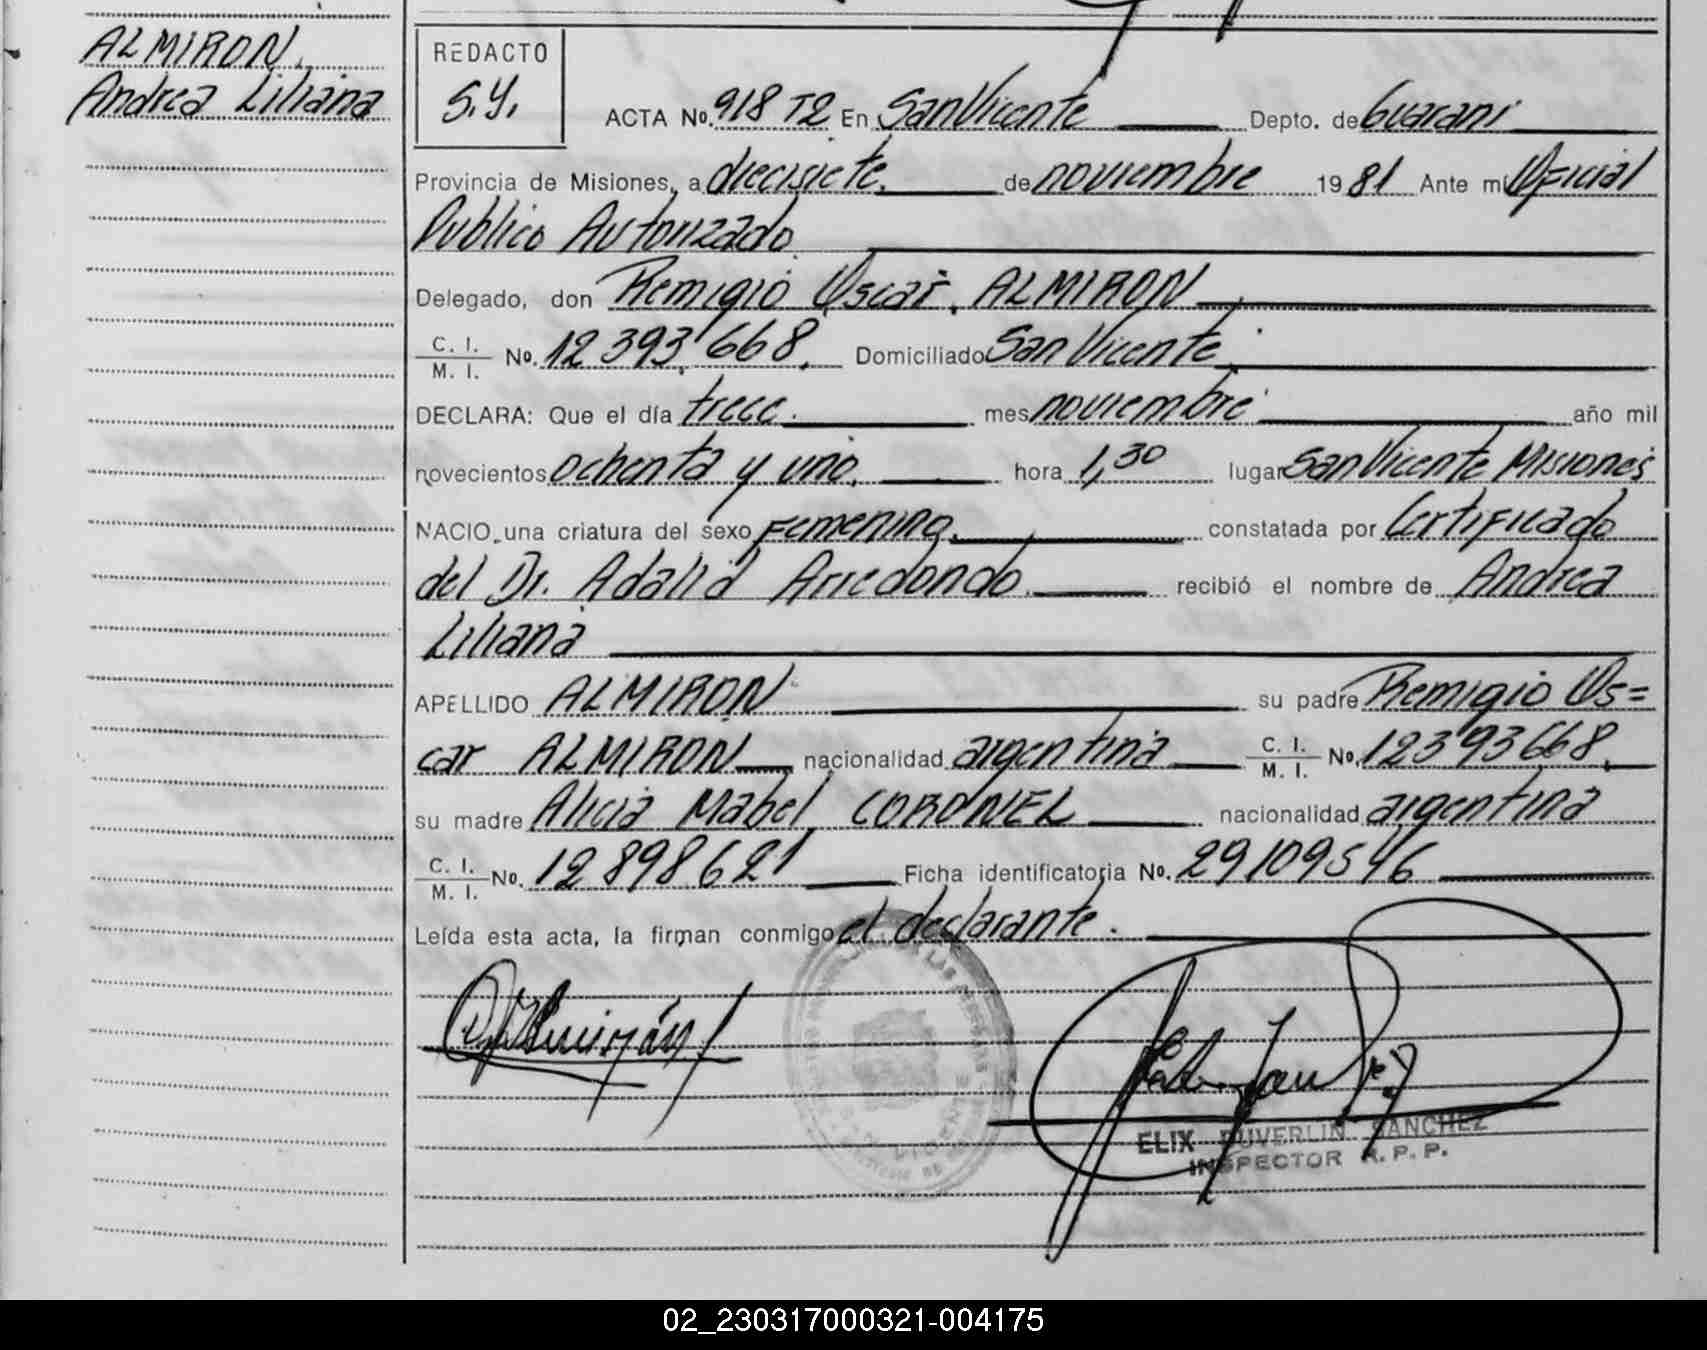 ALMIRON,
Andrea Liliana
REDACTO
S.Y.
ACTA No. 918 T2 En San Vicente Depto. de Guarani
Provincia de Misiones, a diecisiete. de noviembre 1981 Ante mi Oficial
Publico Autorizado
Delegado, don Remigio Oscar, ALMIRON
C. I.
M. I. No. 12.393.668, Domiciliado San Vicente,
DECLARA: Que el día trece. mes noviembre año mil
novecientos ochenta y uno, hora 1,30 lugar San Vicente Misiones
NACIO, una criatura del sexo Femenino, constatada por Certificado
del Dr. Adalid Arredondo. recibió el nombre de Andrea
Liliana
APELLIDO ALMIRON su padre Remigio Os=
car ALMIRON nacionalidad argentina C. I.
M. I. No. 12393668,
su madre Alicia Mabel CORONEL nacionalidad argentina
C. I.
M. I. No. 12898621 Ficha identificatoria No. 29109546
Leída esta acta, la firman conmigo el declarante.
ELIX DUVERLIN SANCHEZ
INSPECTOR R. P. P.
02_230317000321-004175